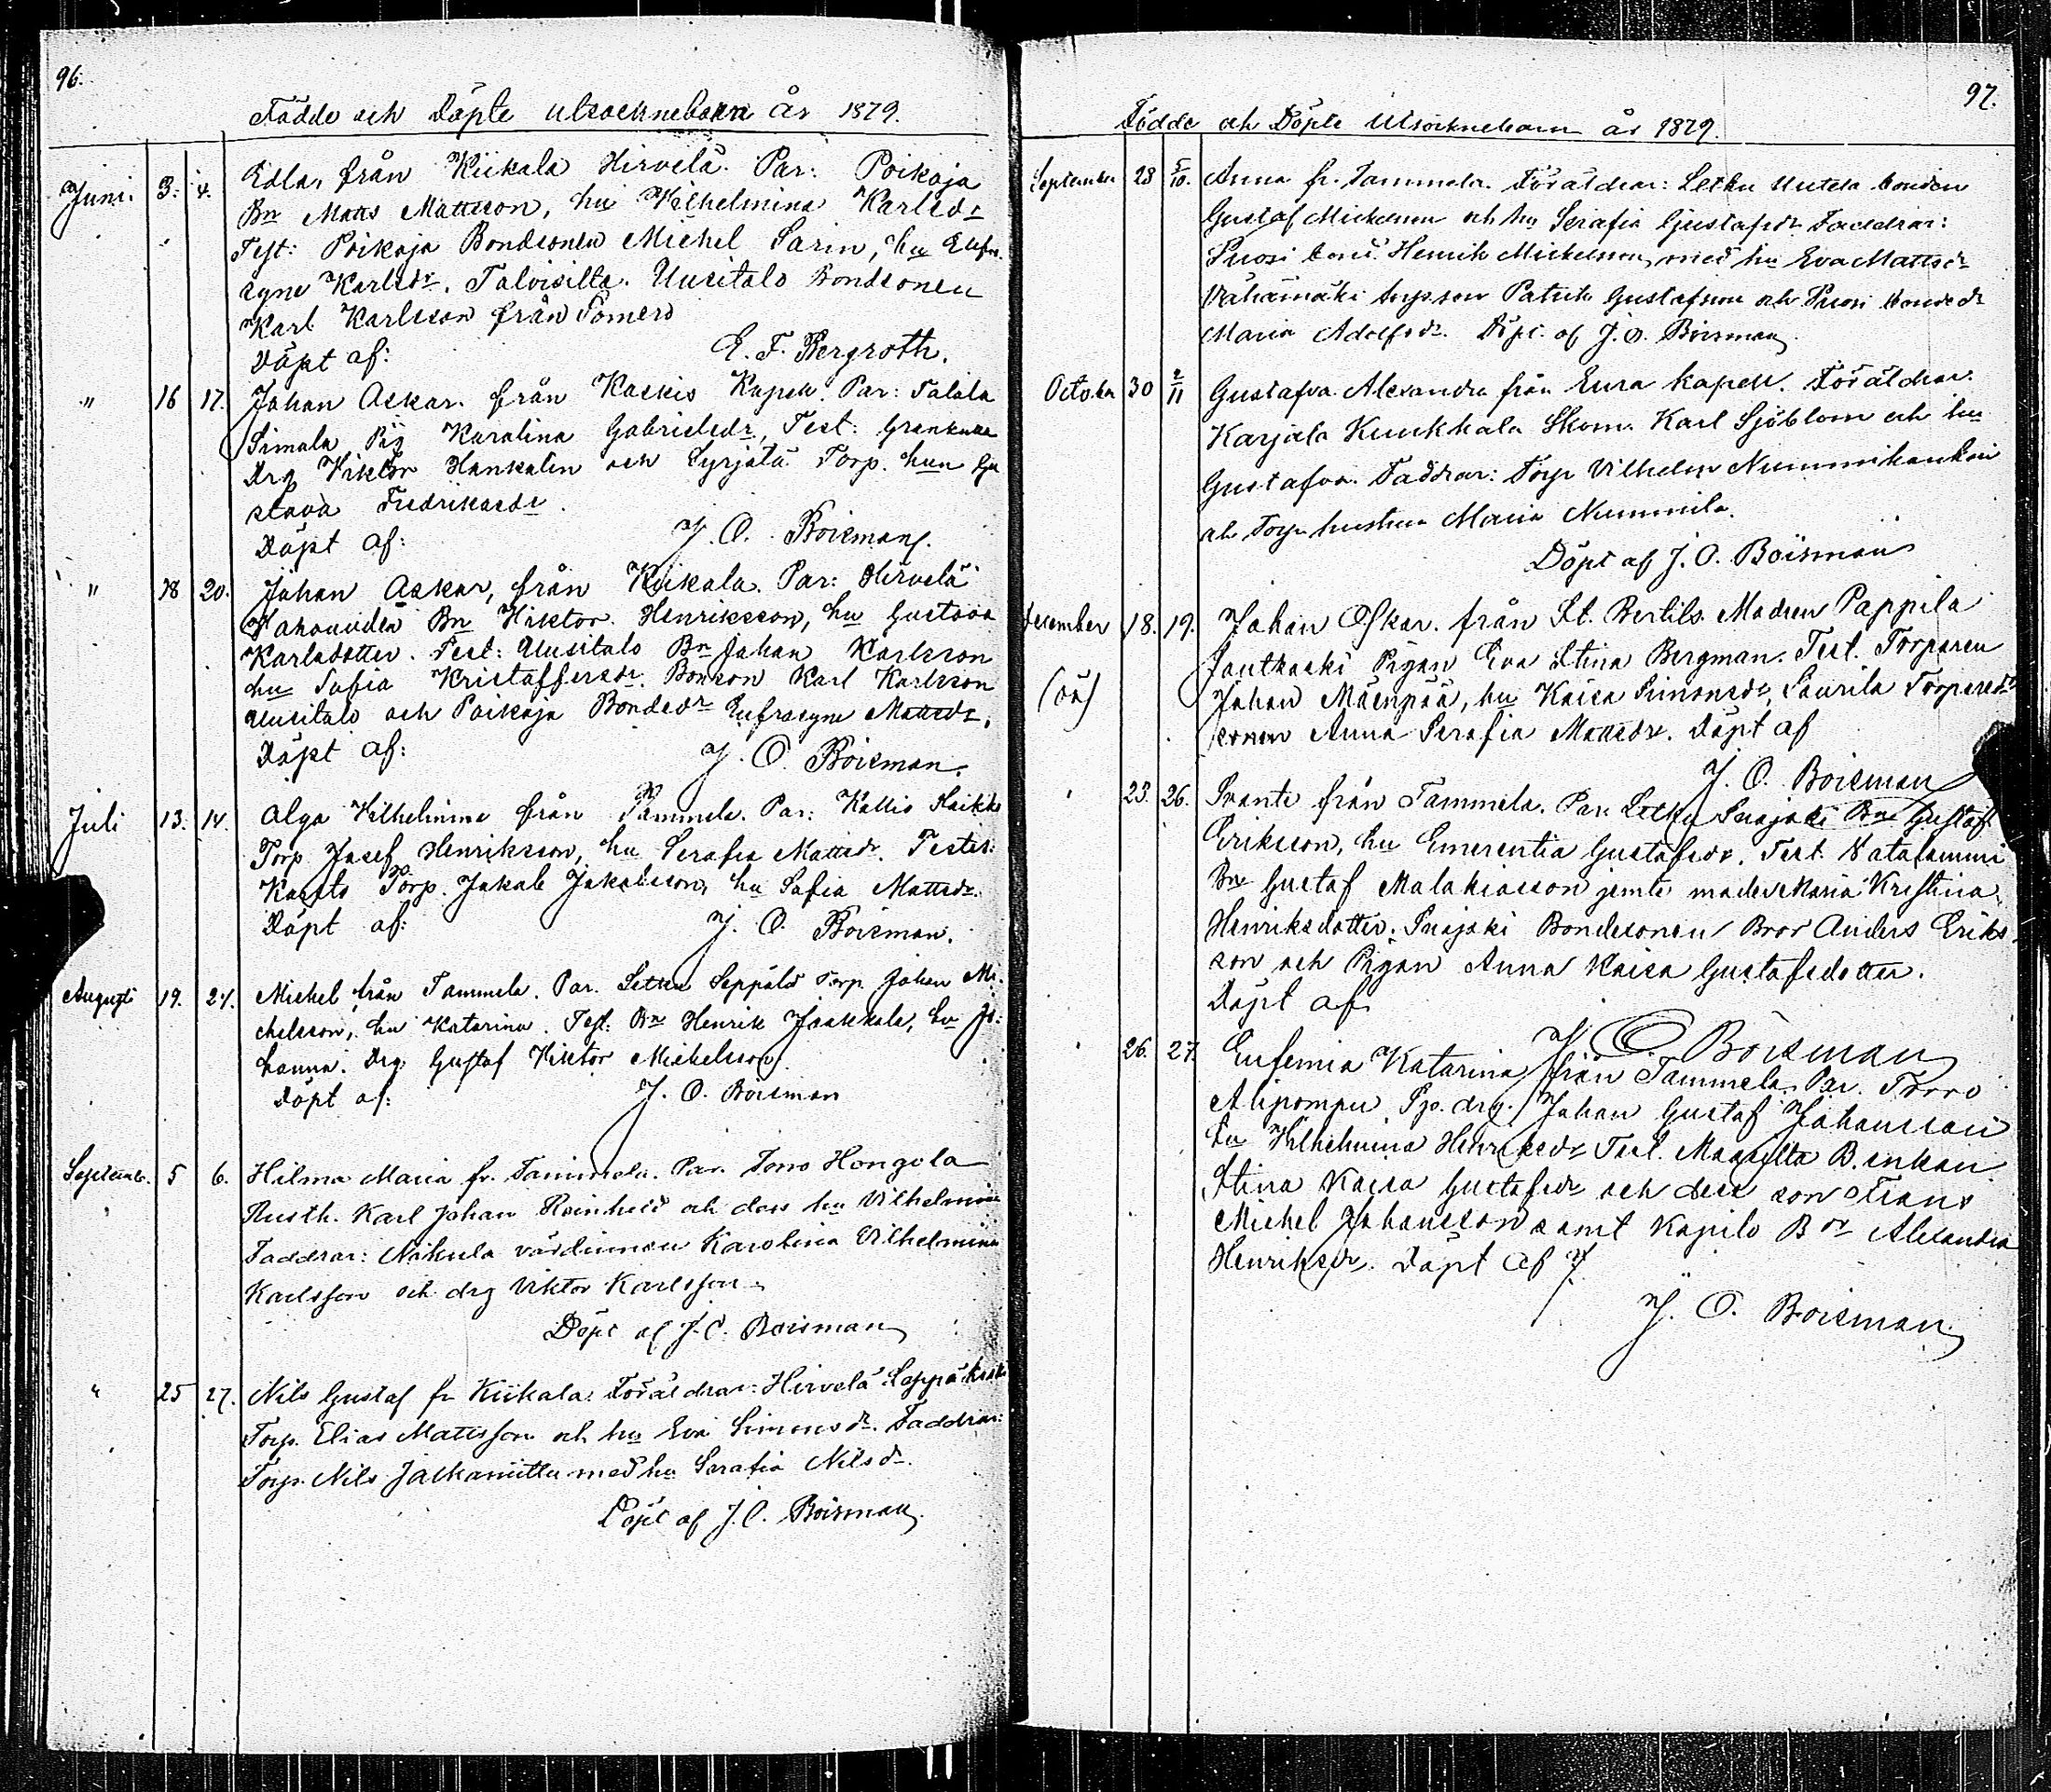 96.
Födde och Döpte utsocknebarn år 1879.
Juni. 3. 4. Edla, från Kiikala Hirvelä. Par: Poikoja
Bn Matts Mattsson, hu Wilhelmina Karlsdr
Test: Poikoja Bondsonen Michel Sarin, hu Eufro-
syne Karlsdr. Talvisilta. Uusitalo Bondsonen
Karl Karlsson från Somero
Döpt af: E. F. Bergroth.
" 16 17. Johan Oskar. från Koskis Kapell. Par: Talola
Simala Pig Karolina Gabrielsdr, Test:
Drg Viktor Hankalin och Syrjälä Torp. hun Gu
stava Fredriksdr.
Döpt af: J. O. Boisman.
" 18 20. Johan Oskar, från Kiikala. Par: Hirvelä
Bn Viktor Henriksson, hu Gustava
Karlsdotter. Test: Uusitalo Bn Johan Karlsson
hu Sofia Kristoffersdr. Bonson Karl Karlsson
Uusitalo och Poikoja Bondedr Eufrosyne Mattsdr.
Döpt af: J. O. Boisman.
Juli 13. 14. Olga Vilhelmina från Tammela. Par: Kallio
Torp Josef Henriksson, hu Serafia Mattsdr. Testes:
Torp. Jakob Jakobsson, hu Sofia Mattsdr.
Döpt af: J. O. Boisman.
Augusti 19. 24. Michel från Tammela. Par. Letku Seppälä Torp. Johan Mi-
chelsson, hu Katarina. Test: Bn Henrik Jaakkola, hu Jo-
hanna. Drg Gustaf Viktor Michelsson.
Döpt af: J. O. Boisman
Septemb. 5 6. Hilma Maria fr. Tammela. Par. Torro Hongola
Rusth. Karl Johan Reinhold och dess hu Vilhelmina
Faddrar: Nikula värdinnan Karolina Vilhelmina
Karlsson och drg Viktor Karlsson.
Döpt af J. O. Boisman
" 25 27. Nils Gustaf fr Kiikala. Föräldrar: Hirvelä
Torp. Elias Mattsson och hu Eva Simonsdr. Faddrar:
Torp. Nils med hu Serafia Nilsdr.
Döpt af J. O. Boisman.
97.
Födde och Döpte Utsocknebarn år 1879.
September 28 5/10. Anna fr. Tammela. Föräldrar: Letku Uutela bonden
Gustaf Mickelsson och hu Serafia Gustafsdr Faddrar:
Suosi bond. Henrik Mickelsson, med hu Eva Mattsdr
Vähämäki torpson Patrik Gustafsson och Suosi bondedr
Maria Adolfsdr. Döpt af J. O. Boisman
October 30 2/11 Gustafva Alexandra från Eura kapell. Föräldrar.
Karjala Kuukkala Skom. Karl Sjöblom och hu
Gustafva. Faddrar: Torp Vilhelm Nummikankin
och Torp. hustrun Maria Nummila.
Döpt af J. O. Boisman
December 18. 19. Johan Oskar. från St. Bertils. Modren Pappila
Pigan Eva Stina Bergman. Test. Torparen
(oä) Johan Mäenpää, hu Kaisa Simonsdr, Saurila Torparedr
Anna Serafia Mattsdr. Döpt af
J. O. Boisman
" 25. 26. Svante från Tammela. Par. Letku Suojoki Bn Gustaf
Eriksson, hu Emerentia Gustafsdr. Test. Vatalammi
Bn Gustaf Malakiasson jemte moder Maria Kristina
Henriksdotter. Suojoki Bondesonen Bror Anders Eriks-
son och Pigan Anna Kaisa Gustafsdotter.
Döpt af
J O Boisman
" 26. 27. Eufemia Katarina från Tammela. Par. Torro
Alipomppu Sp. drg. Johan Gustaf Johansson
hu Vilhelmina Henriksdr Test. B. enkan
Stina Kaisa Gustafsdr och dess son Frans
Michel Johansson samt Kopilo B dr Alexandra
Henriksdr. Döpt af
J. O. Boisman